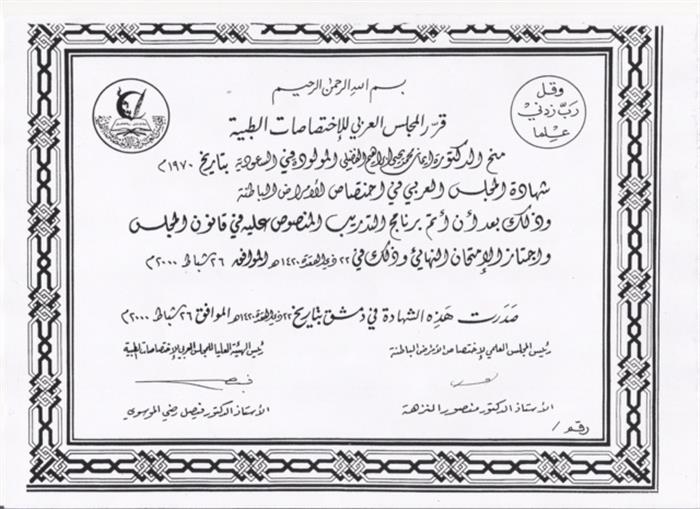 بسم الله الرحمن الرحيم
وقل
رب زدني
علما
قرر المجلس العربي للإختصاصات الطبية
منح الدكتورة ايمان محمد يحيى ابراهيم الفضلي المولود في السعودية بتاريخ ١٩٧٠م
شهادة المجلس العربي في اختصاص الأمراض الباطنة
وذلك بعد أن أتم برنامج التدريب المنصوص عليه في قانون المجلس
واجتاز الإمتحان النهائي وذلك في ٢٢ ذي القعدة ١٤٢٠هـ الموافق ٢٦ شباط ٢٠٠٠م
صدرت هذه الشهادة في دمشق بتاريخ ٢٢ ذي القعدة ١٤٢٠هـ الموافق ٢٦ شباط ٢٠٠٠م
رئيس المجلس العلمي لإختصاص الأمراض الباطنة
رئيس الهيئة العليا للمجلس العربي للإختصاصات الطبية
الأستاذ الدكتور منصور النزهة
الأستاذ الدكتور فيصل رضي الموسوي
رقم /